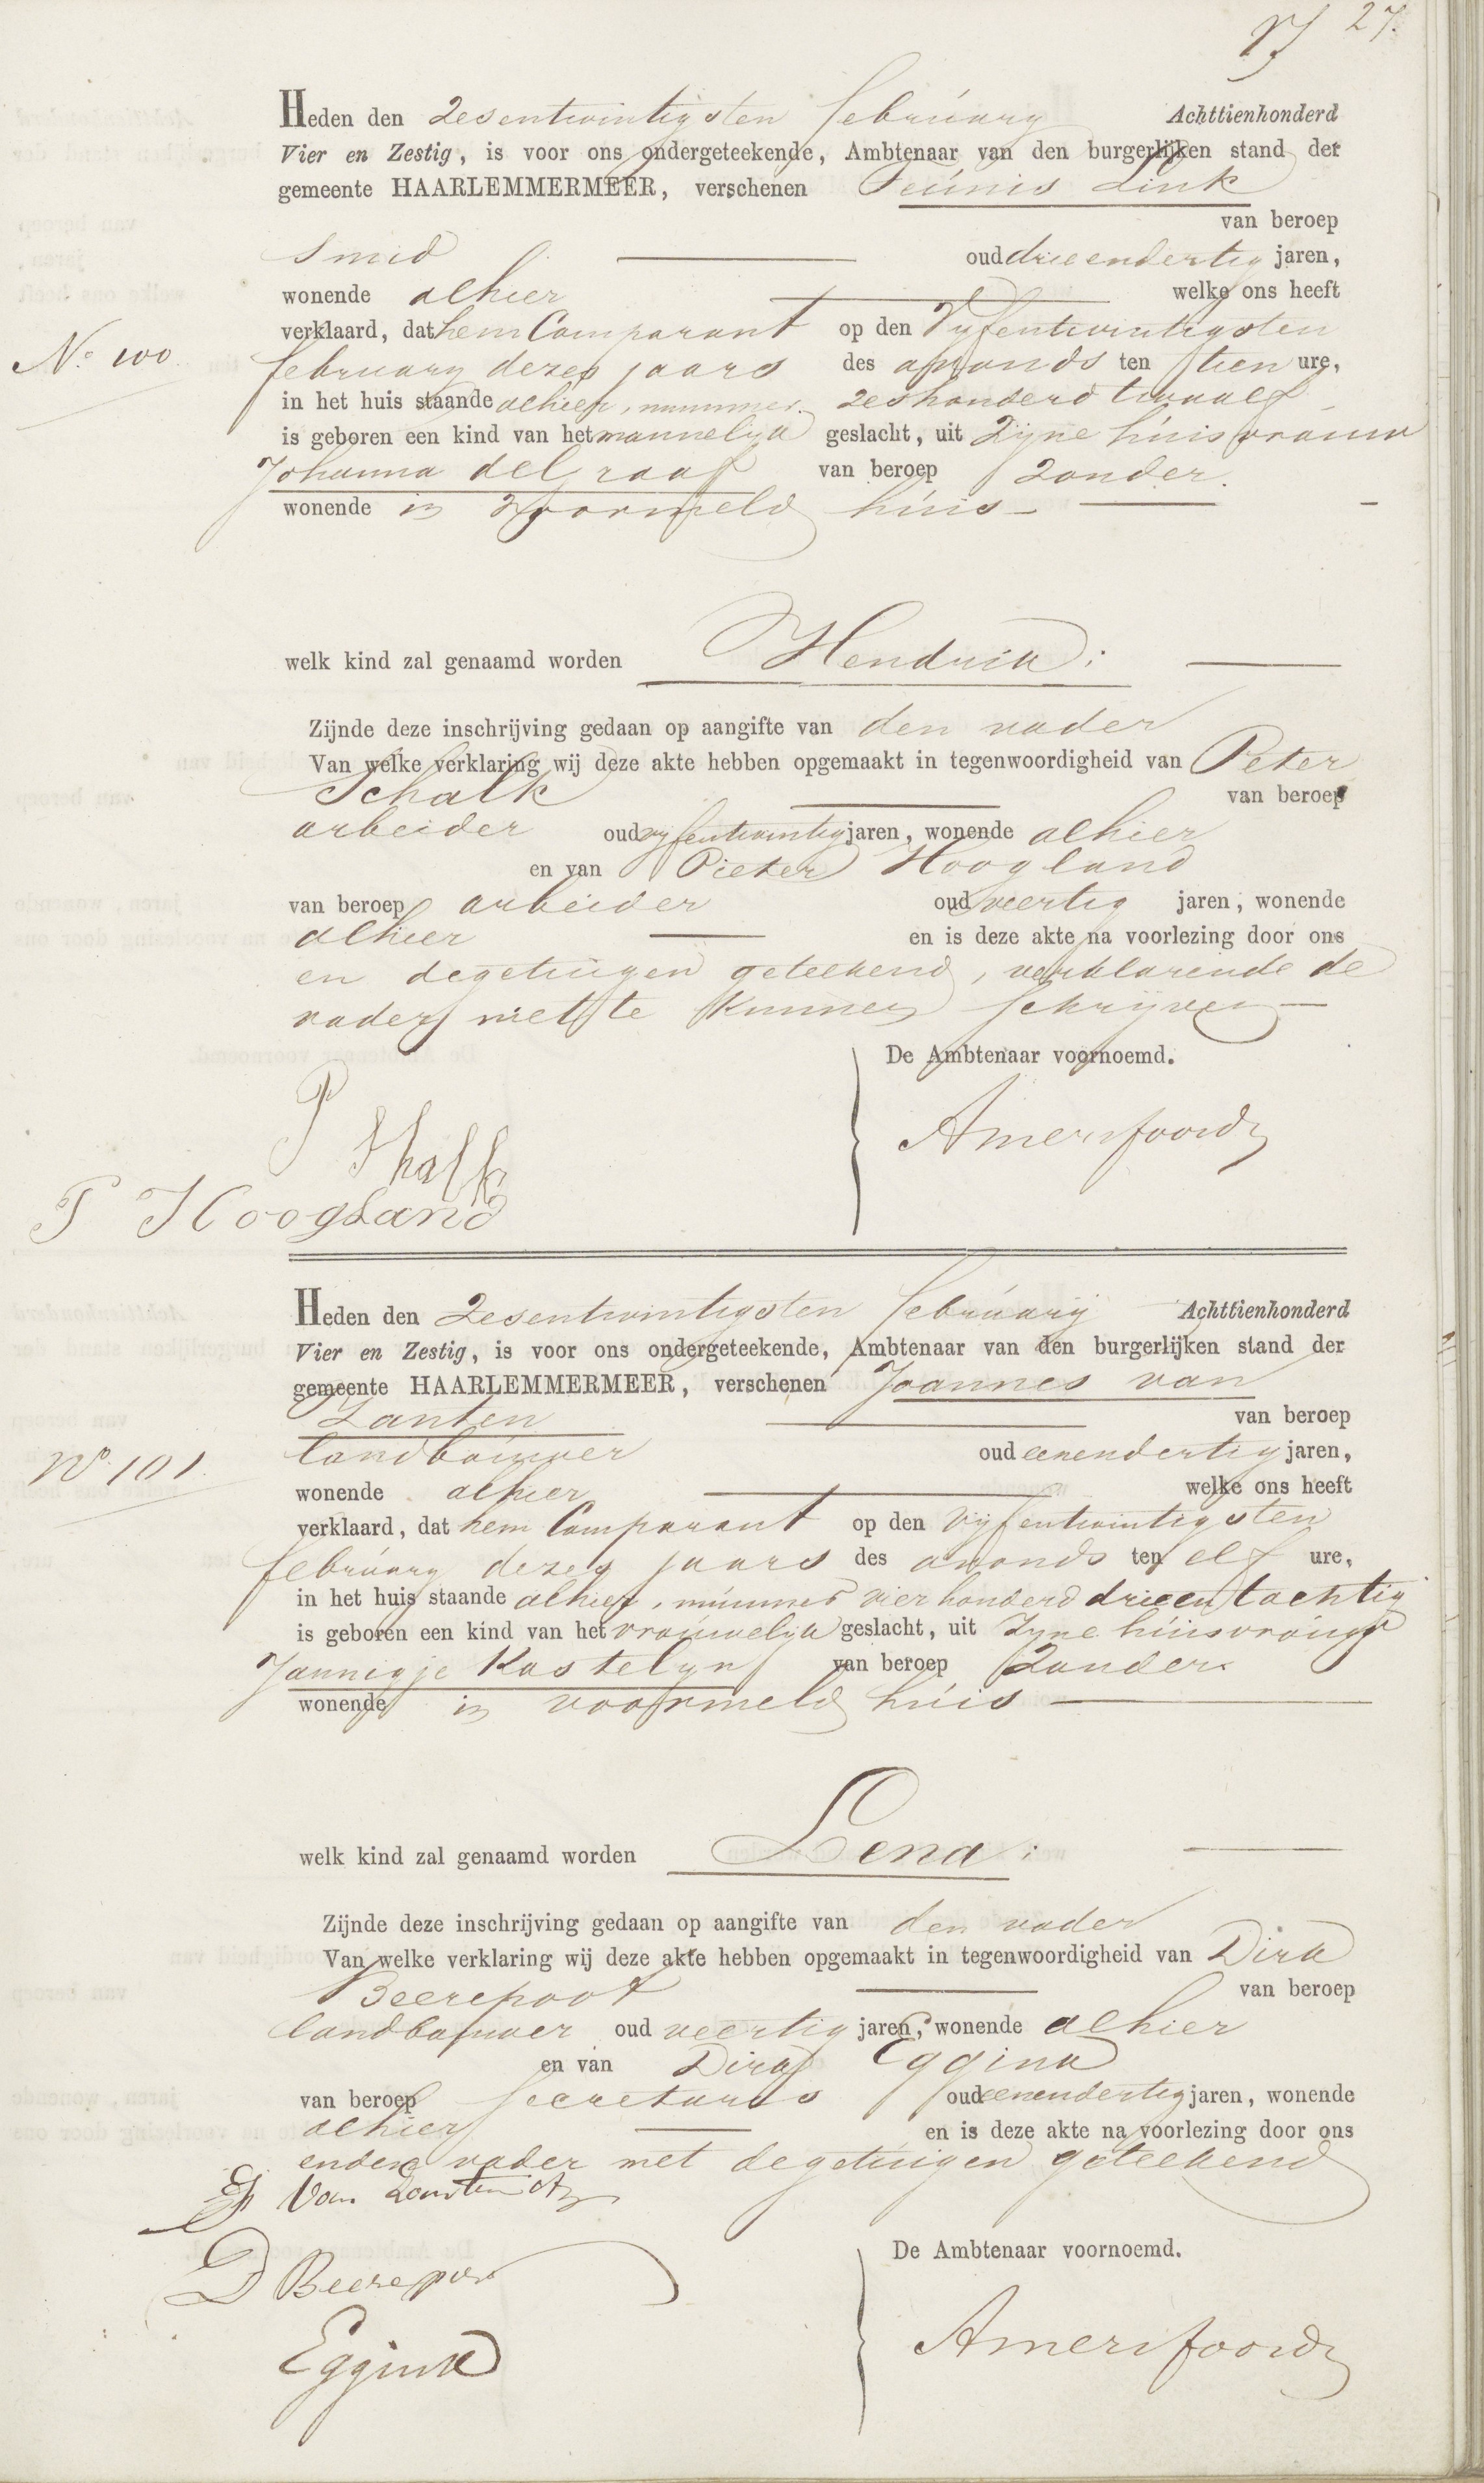 27.
Heden den Zesentwintigsten february Achttienhonderd
Vier en Zestig, is voor ons ondergeteekende, Ambtenaar van den burgerlijken stand der
gemeente HAARLEMMERMEER, verschenen Teunis Link
van beroep
Smid oud drieendertig jaren,
wonende alhier welke ons heeft
verklaard, dat hem Comparant op den Vyfentwintigsten
N.o 100
february dezes jaars des avonds ten tien ure,
in het huis staande alhier, nummer zeshonderd twaalf
is geboren een kind van het mannelyk geslacht, uit Zyne huisvrouw
Johanna del raaf van beroep zonder.
wonende in voormeld huis
welk kind zal genaamd worden Hendrik:
Zijnde deze inschrijving gedaan op aangifte van den vader
Van welke verklaring wij deze akte hebben opgemaakt in tegenwoordigheid van Peter
Schalk van beroep
arbeider oud vyfentwintig jaren, wonende alhier
en van Pieter Hoogland
van beroep arbeider oud veertig jaren, wonende
alhier en is deze akte na voorlezing door ons
en degetuigen geteekend, verklarende de
vader niet te kunnen schrijven
De Ambtenaar voornoemd.
P Shalk
Amersfoordt
P Hoogland
Heden den Zesentwintigsten februarij Achttienhonderd
Vier en Zestig, is voor ons ondergeteekende, Ambtenaar van den burgerlijken stand der
gemeente HAARLEMMERMEER, verschenen Joannes van
Zanten van beroep
N.o 101.
landbouwer oud eenendertig jaren,
wonende alhier welke ons heeft
verklaard, dat hem Comparant op den vijfentwintigsten
february dezes jaars des avonds ten elf ure,
in het huis staande alhier, nummer vierhonderd drieentachtig
is geboren een kind van het vrouwelyk geslacht, uit Zyne huisvrouw
Jannigje Kastelyn van beroep Zonder.
wonende in voormeld huis
welk kind zal genaamd worden Lena:
Zijnde deze inschrijving gedaan op aangifte van den vader
Van welke verklaring wij deze akte hebben opgemaakt in tegenwoordigheid van Dirk
Beerepoot van beroep
landbouwer oud veertig jaren, wonende alhier
en van Dirk Eggink
van beroep secretaris oud eenendertig jaren, wonende
alhier en is deze akte na voorlezing door ons
en den vader met degetuigen geteekend
Van Zanten
De Ambtenaar voornoemd.
D Beerepoot
Amersfoordt
Eggink